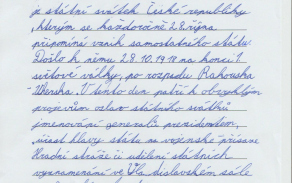 je státní svátek České republiky
kterým se každoročně 28. října
připomíná vznik samostatného státu
Došlo k němu 28.10.1918 na konci 1.
světové války, po rozpadu Rakouska
Uherska. V tento den patří k obvyklým
projevům oslav státního svátků
jmenování generálů prezidentem,
účast hlavy státu na vojenské přísaze
Hradní stráže či udílení státních
vyznamenání ve Vladislavském sále